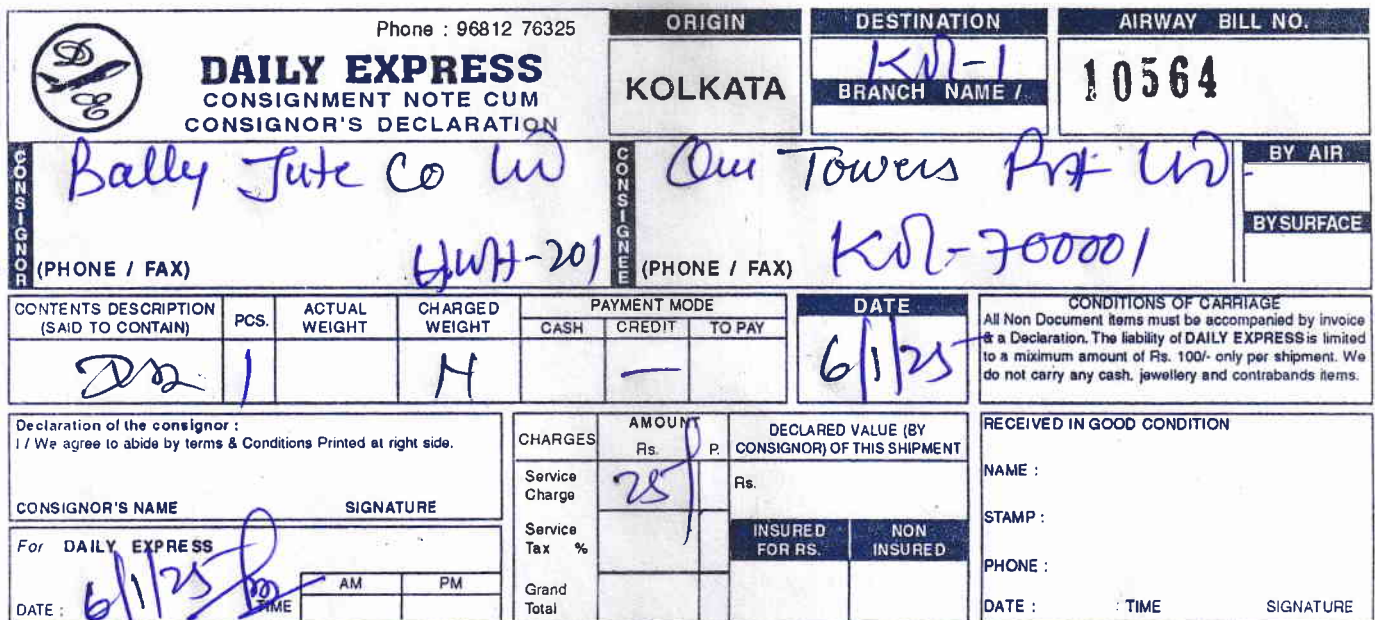 Phone : 96812 76325
DAILY EXPRESS
CONSIGNMENT NOTE CUM
CONSIGNOR'S DECLARATION
ORIGIN
KOLKATA
DESTINATION
Kol-1
BRANCH NAME /
AIRWAY BILL NO.
10564
CONSIGNOR
Bally Jute Co Ltd
HWH-201
(PHONE / FAX)
CONSIGNEE
Towers Pvt Ltd
Kol-700001
(PHONE / FAX)
BY AIR
BY SURFACE
CONTENTS DESCRIPTION
(SAID TO CONTAIN)
PCS.
1
ACTUAL
WEIGHT
CHARGED
WEIGHT
PAYMENT MODE
CASH CREDIT TO PAY
—
DATE
6/1/25
CONDITIONS OF CARRIAGE
All Non Document items must be accompanied by invoice
& a Declaration. The liability of DAILY EXPRESS is limited
to a miximum amount of Rs. 100/- only per shipment. We
do not carry any cash, jewellery and contrabands items.
Declaration of the consignor :
I / We agree to abide by terms & Conditions Printed at right side.
CONSIGNOR'S NAME SIGNATURE
For DAILY EXPRESS
DATE : 6/1/25 TIME AM PM
CHARGES AMOUNT
Rs. P.
Service
Charge 25
Service
Tax %
Grand
Total
DECLARED VALUE (BY
CONSIGNOR) OF THIS SHIPMENT
Rs.
INSURED
FOR RS.
NON
INSURED
RECEIVED IN GOOD CONDITION
NAME :
STAMP :
PHONE :
DATE : : TIME SIGNATURE